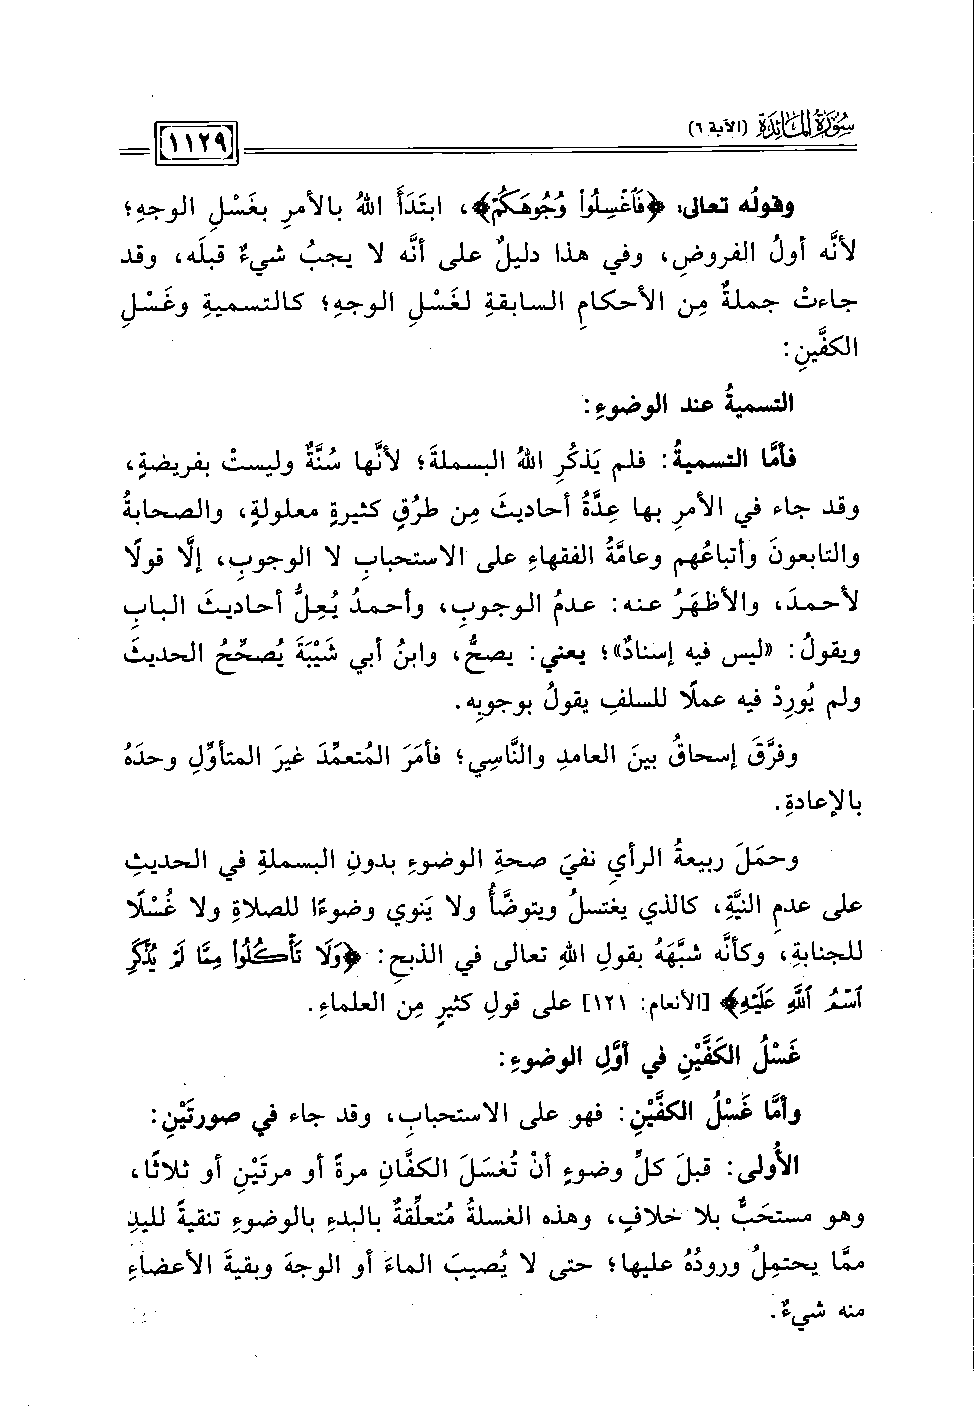 سُورَةُ المَائِدَةِ (الآية ٦)
١١٢٩
وقولُه تعالى: ﴿فَٱغْسِلُوا۟ وُجُوهَكُمْ﴾، ابتَدَأَ اللهُ بالأمرِ بغَسْلِ الوجهِ؛
لأنَّه أولُ الفروضِ، وفي هذا دليلٌ على أنَّه لا يجبُ شيءٌ قبلَه، وقد
جاءتْ جملةٌ مِن الأحكامِ السابقةِ لغَسْلِ الوجهِ؛ كالتسميةِ وغَسْلِ
الكفَّينِ:
التسميةُ عند الوضوءِ:
فأمَّا التسميةُ: فلم يَذكُرِ اللهُ البسملةَ؛ لأنَّها سُنَّةٌ وليستْ بفريضةٍ،
وقد جاء في الأمرِ بها عِدَّةُ أحاديثَ مِن طرُقٍ كثيرةٍ معلولةٍ، والصحابةُ
والتابعونَ وأتباعُهم وعامَّةُ الفقهاءِ على الاستحبابِ لا الوجوبِ، إلَّا قولًا
لأحمدَ، والأظهَرُ عنه: عدمُ الوجوبِ، وأحمدُ يُعِلُّ أحاديثَ البابِ
ويقولُ: «ليس فيه إسنادٌ»؛ يعني: يصحُّ، وابنُ أبي شَيْبَةَ يُصحِّحُ الحديثَ
ولم يُورِدْ فيه عملًا للسلفِ يقولُ بوجوبِه.
وفرَّقَ إسحاقُ بينَ العامدِ والنَّاسِي؛ فأمَرَ المُتعمِّدَ غيرَ المتأوِّلِ وحدَهُ
بالإعادةِ.
وحمَلَ ربيعةُ الرأيِ نفيَ صحةِ الوضوءِ بدونِ البسملةِ في الحديثِ
على عدمِ النيَّةِ، كالذي يغتسلُ ويتوضَّأُ ولا يَنوِي وضوءًا للصلاةِ ولا غُسْلًا
للجنابةِ، وكأنَّه شبَّهَهُ بقولِ اللهِ تعالى في الذبحِ: ﴿وَلَا تَأْكُلُوا۟ مِمَّا لَمْ يُذْكَرِ
ٱسْمُ ٱللَّهِ عَلَيْهِ﴾ [الأنعام: ١٢١] على قولِ كثيرٍ مِن العلماءِ.
غَسْلُ الكَفَّيْنِ في أوَّلِ الوضوءِ:
وأمَّا غَسْلُ الكفَّيْنِ: فهو على الاستحبابِ، وقد جاء في صورتَيْنِ:
الأُولى: قبلَ كلِّ وضوءٍ أنْ تُغسَلَ الكفَّانِ مرةً أو مرتَيْنِ أو ثلاثًا،
وهو مستحَبٌّ بلا خلافٍ، وهذه الغسلةُ مُتعلِّقةٌ بالبدءِ بالوضوءِ تنقيةً لليدِ
ممَّا يحتمِلُ ورودُهُ عليها؛ حتى لا يُصيبَ الماءَ أو الوجهَ وبقيةَ الأعضاءِ
منه شيءٌ.